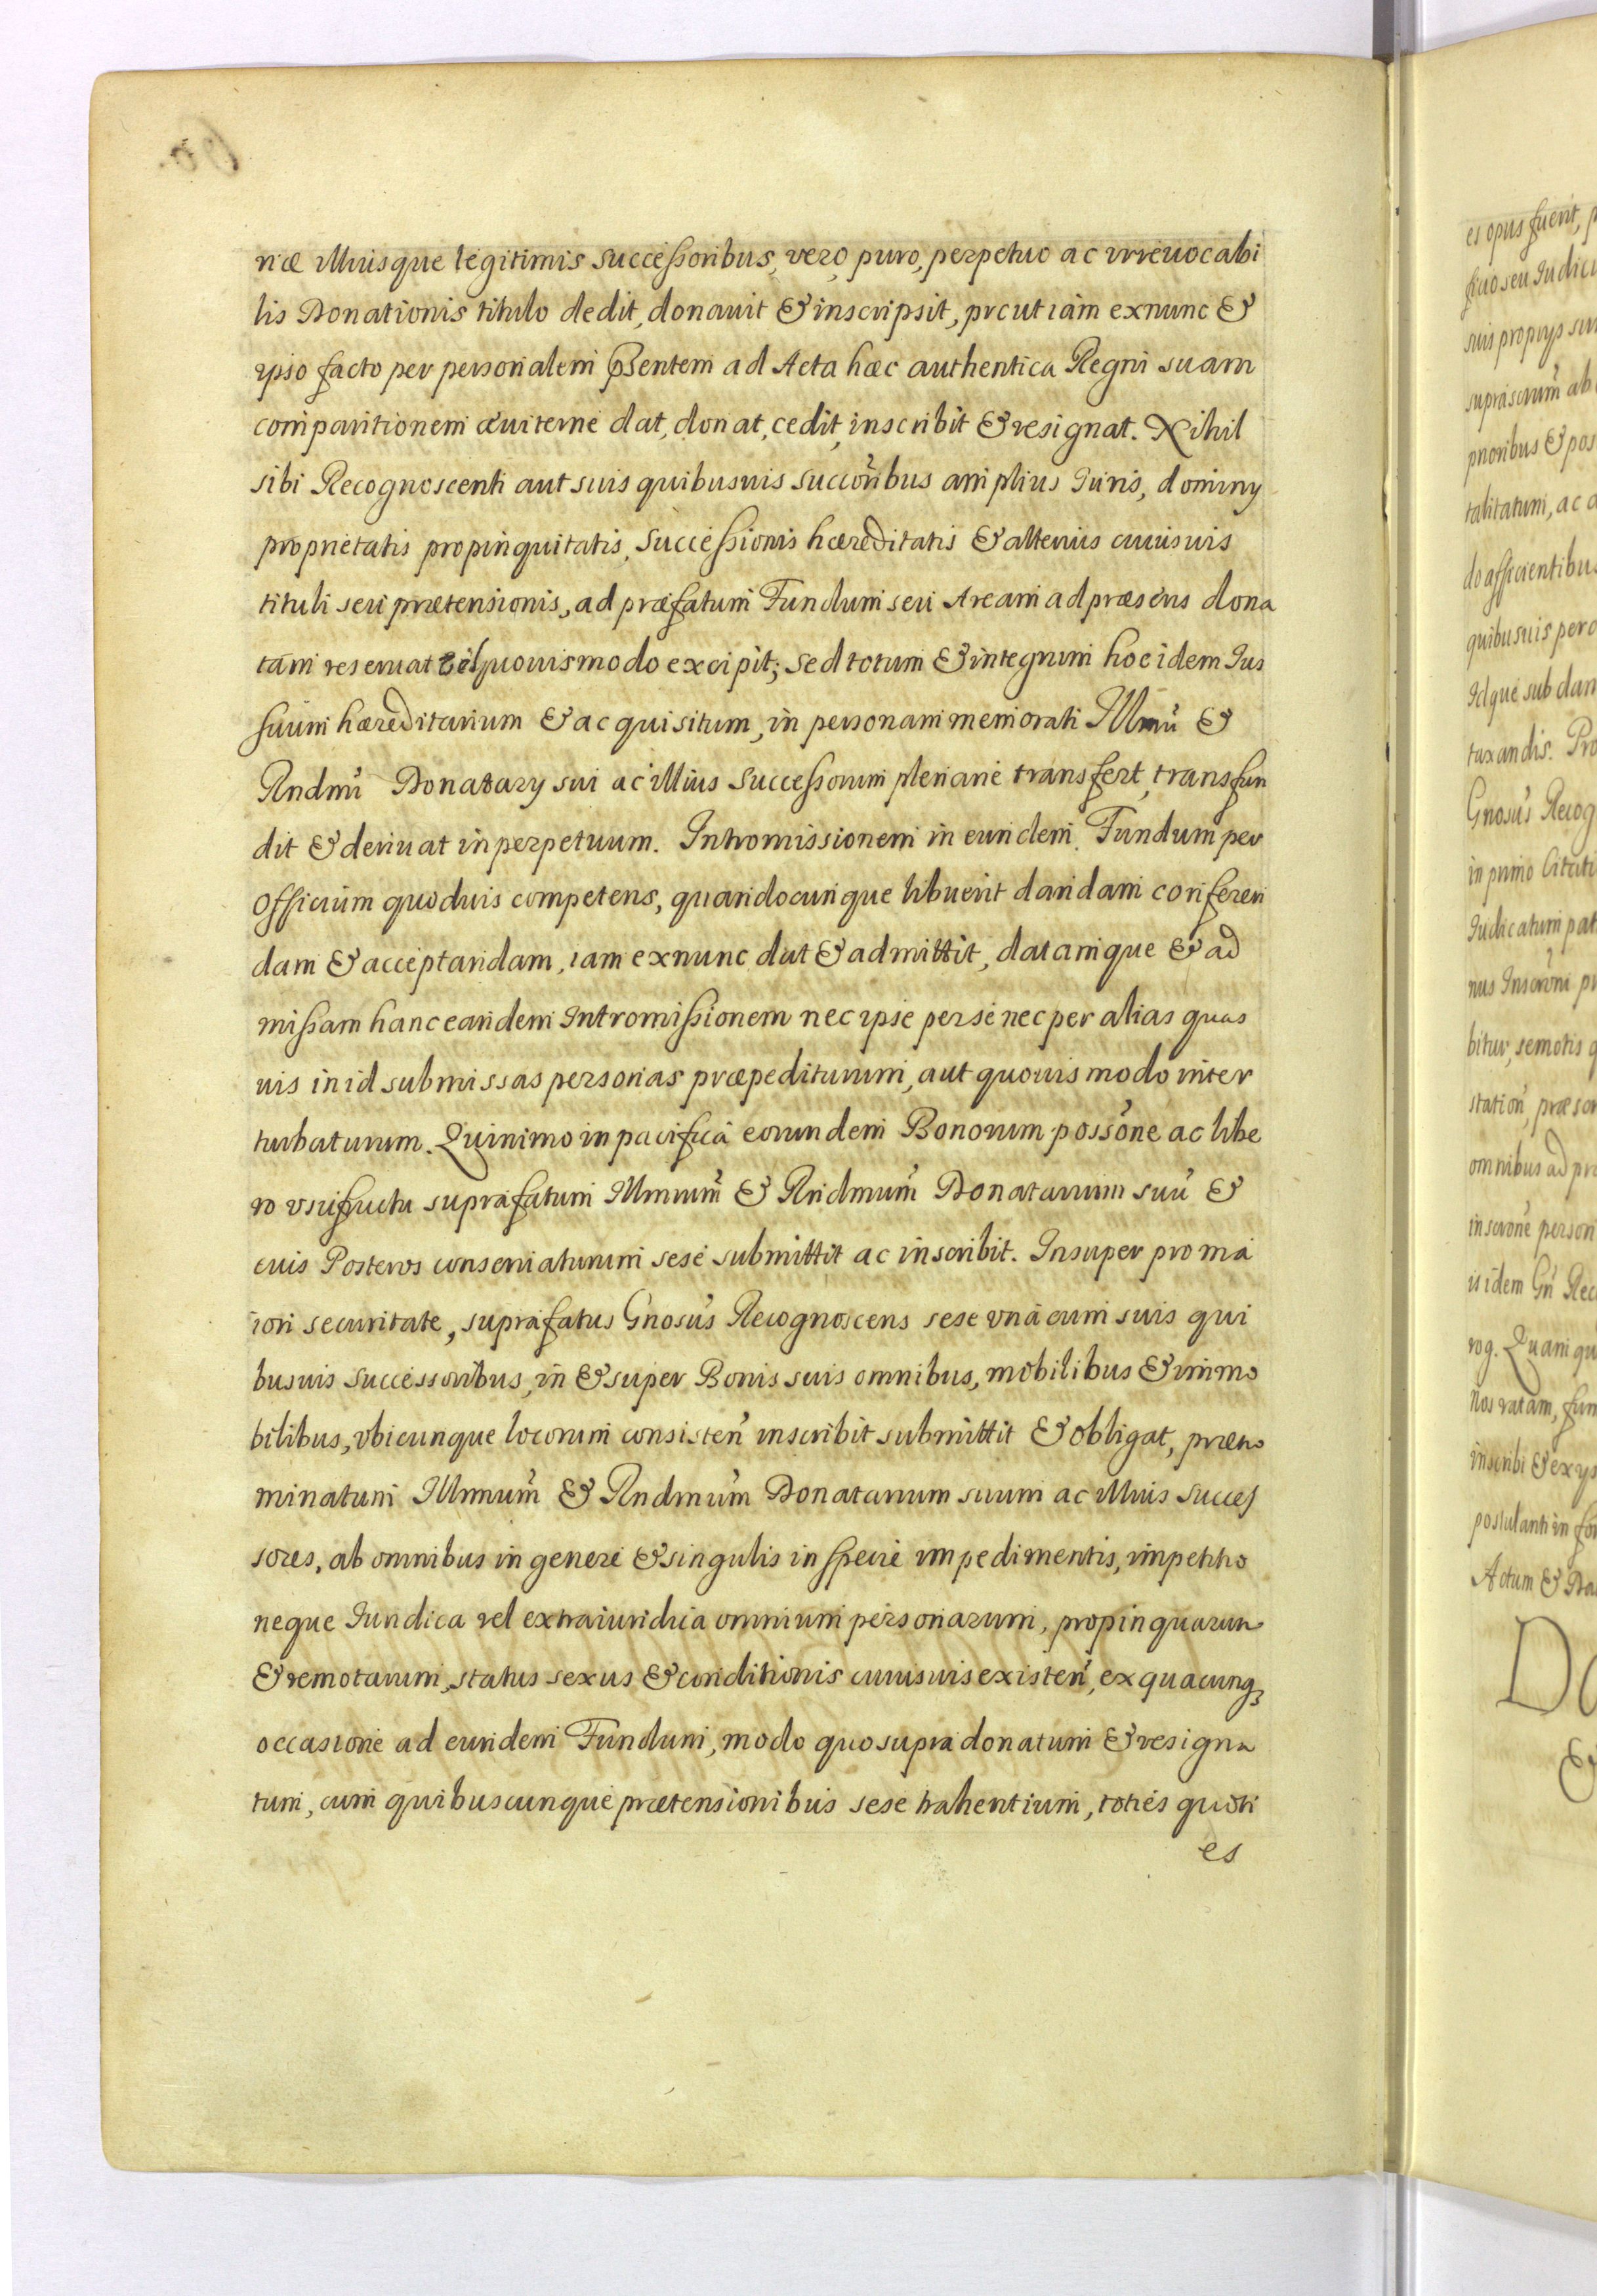 næ illiusque legitimis successoribus, vero, puro, perpetuo ac irreuocabi
lis Donationis titulo dedit, donauit & inscripsit, prout iam exnunc &
ipso facto per personalem pñsentem ad Acta hæc authentica Regni suam
comparitionem æuiterne dat, donat, cedit, inscribit & resignat. Nihil
sibi Recognoscenti aut suis quibusuis succorĩbus amplius Iuris, dominy
proprietatis propinquitatis, successionis hæreditatis & alterius cuiusuis
tituli seu prætensionis, ad præfatum Fundum seu Aream ad præsens dona
tam reseruat quouismodo excipit; sed totum & integrum hoc idem Ius
suum hæreditarium & acquisitum, in personam memorati Illmũ &
Rndmũ Donatary sui ac illius successorum plenarie transfert, transfun
dit & deriuat in perpetuum. Intromissionem in eundem Fundum per
Officium quoduis competens, quandocunque libuerit dandam conferen
dam & acceptandam, iam exnunc dat & admittit, datamque & ad
missam hanc eandem Intromissionem nec ipse per se nec per alias quas
uis in id submissas personas præpediturum, aut quouis modo inter
turbaturum. Quinimo in pacifica eorundem Bonorum possõne ac libe
ro vsufructu suprafatum Illmum̃ & Rndmum̃ Donatarium suũ &
euis Posteros conseruaturum sese submittit ac inscribit. Insuper pro ma
iori securitate, suprafatus Gnosũs Recognoscens sese vna cum suis qui
busuis successoribus, in & super Bonis suis omnibus, mobilibus & immo
bilibus, vbicunque locorum consisteñ inscribit submittit & obligat, præno
minatum Illmum̃ & Rndmum̃ Donatarium suum ac illius succes
sores, ab omnibus in genere & singulis in specie impedimentis, impetitio
neque Iuridica vel extraiuridica omnium personarum, propinquarum
& remotarum, status sexus & conditionis cuiusuis existeñ, ex quacunq3
occasione ad eundem Fundum, modo quo supra donatum & resigna
tum, cum quibuscunque prætensionibus sese trahentium, toties quoti
es
es opus fuerit,
suis proprys
supra
prioribus & pos
talitatum, ac
do afficientibus
quibusuis per
Idque sub dam
taxandis. Pro
Gnosũs Recog
in primo Citati
Iudicatum pat
nus Inscrõni
bitur, semotis
omnibus ad
inscrõne person
is idem Gñ Rec
rog. Quam
nos ratam,
inscribi & exys
postulanti in
Actum & Da
DO
&